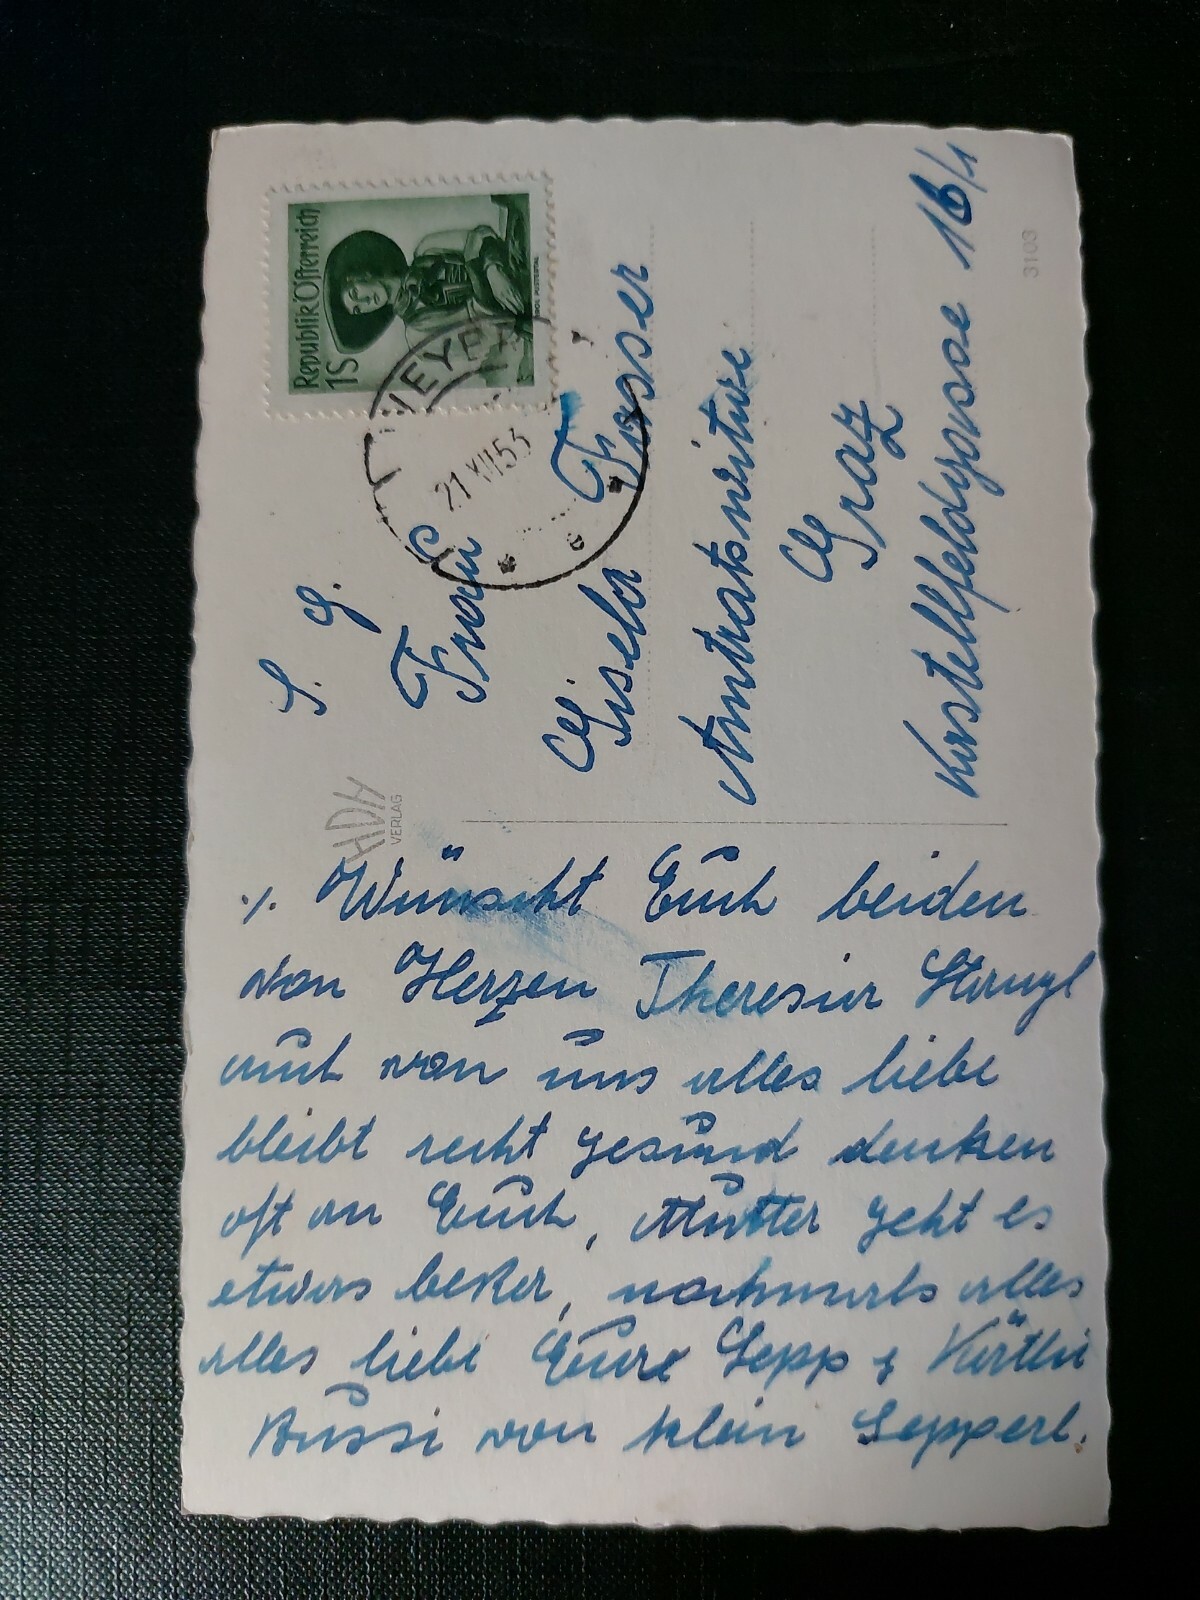 ./. Wünscht Euch beiden
von Herzen Theresia Stangl
auch von uns alles liebe
bleibt recht gesund denken
oft an Euch, Mutter geht es
etwas beßer, nochmals alles
alles liebe Eure Sepp & Käthi
Bussi von klein Sepperl.
HDH
VERLAG
S. G.
Frau
Gisela Fasser
Amtratswitwe
Graz
Kastellfeldgasse 16/1
Republik Österreich
1S
WEYER
21.XII.53
3103